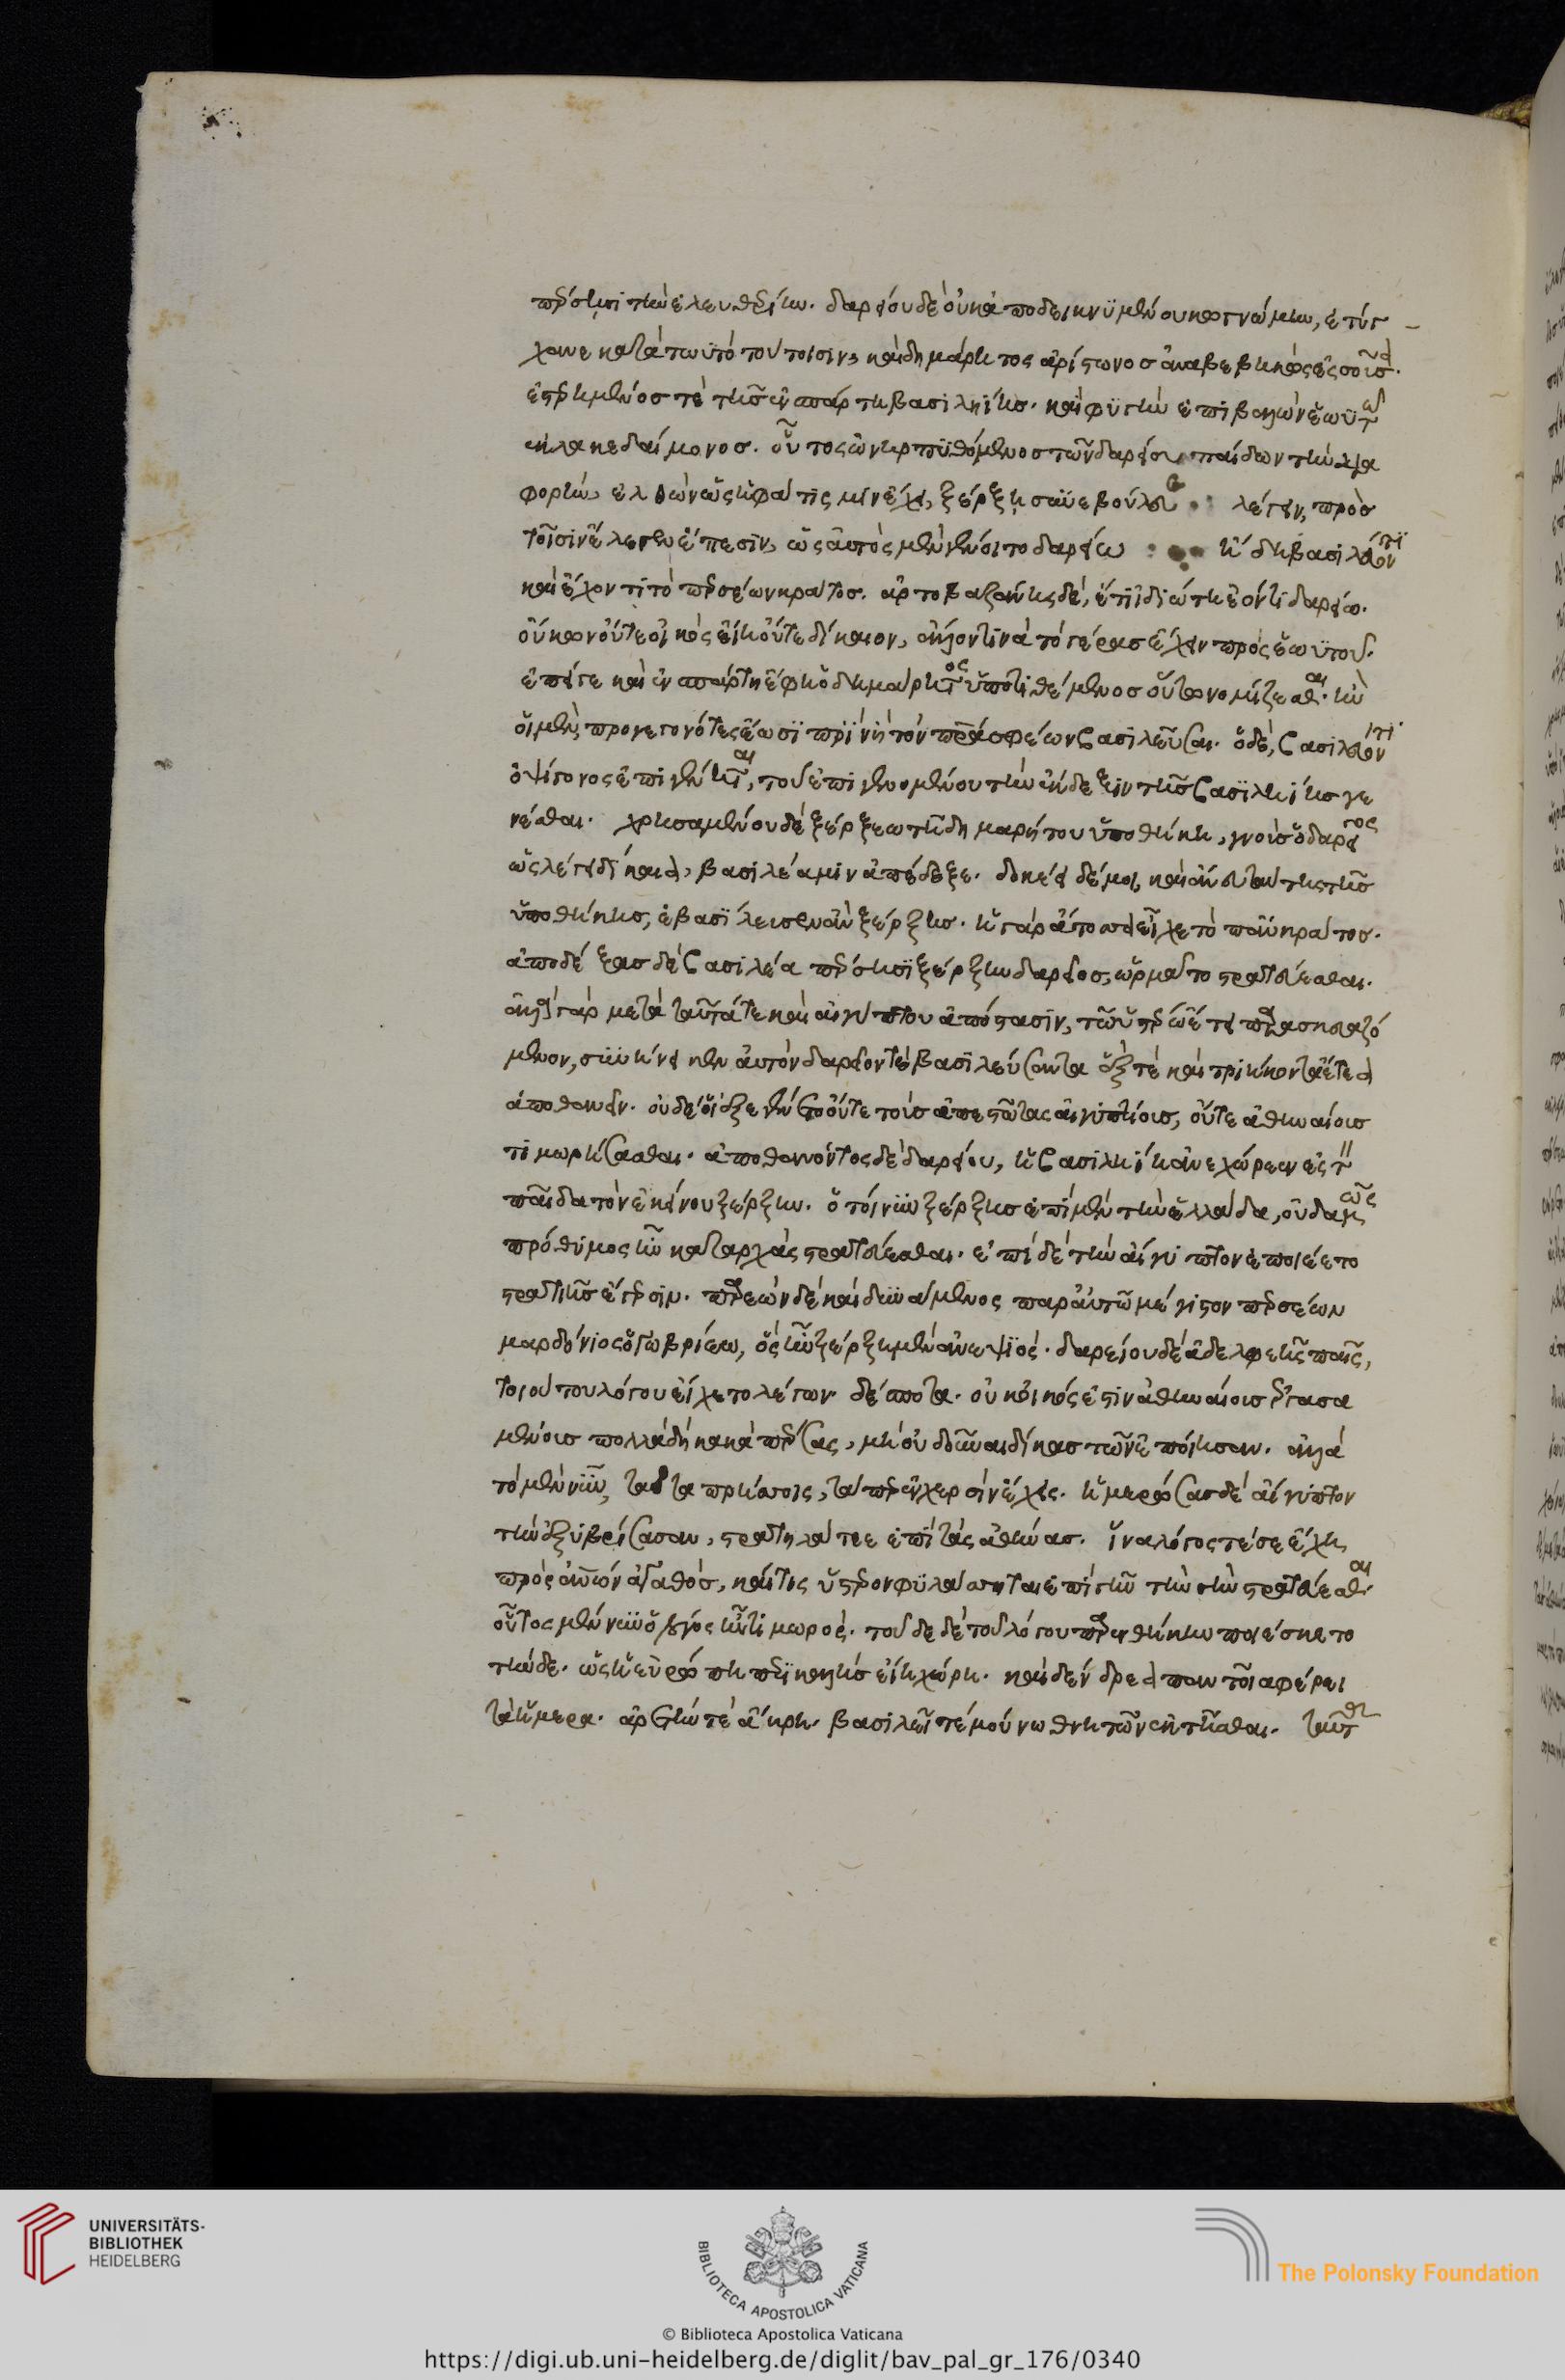 πέρσησι τὴν ἐλευθερίην. δαρείου δὲ οὐκ ἀποδεικνυμένου κω γνώμην, ἐτύγ
χανε κατὰ τωὐτὸ τούτοισιν καὶ δημάρητος ἀρίστωνος ἀναβεβηκὼς ἐς σοῦσα.
ἐστερημένος τὲ τῆς ἐν σπάρτη βασιληίης. καὶ φυγὴν ἐπιβαλὼν ἑωυτῶ
ἐκ λακεδαίμονος. οὗτος ὡνὴρ πυθόμενος τῶν δαρείου παίδων τὴν δια
φορὴν, ἐλθὼν ὡς ἡ φάτις μιν ἔχει, ξέρξη συνεβούλευε λέγειν, πρὸς
τοῖσιν ἔλεγεν ἔπεσιν, ὡς αὐτὸς μὲν γένοιτο δαρείω ἤδη βασιλεύοντι
καὶ ἔχοντι τὸ περσέων κράτος. ἀρτοβαζάνης δὲ, ἔτι ἰδιώτη ἐόντι δαρείω.
οὔκων οὔτε οἰκὸς εἴη οὔτε δίκαιον, ἄλλον τινὰ τὸ γέρας ἔχειν πρὸς ἑωυτοῦ.
ἐπεί γε καὶ ἐν σπάρτη ἔφη ὁ δημάρητος ὑποτιθέμενος οὕτω νομίζεσθαι. ἢν
οἱ μὲν προγεγονότες ἔωσι πρὶν ἢ τὸν πατέρα σφέων βασιλεῦσαι. ὁ δὲ, βασιλεύοντι
ὀψίγονος ἐπιγένηται, τοῦ ἐπιγενομένου τὴν ἔκδεξιν τῆς βασιληίης γε
νέσθαι. χρησαμένου δὲ ξέρξεω τῆ δημαρήτου ὑποθήκη, γνοὺς ὁ δαρεῖος
ὡς λέγει δίκαια, βασιλέα μιν ἀπέδεξε. δοκέει δέ μοι, καὶ ἄνευ ταύτης τῆς
ὑποθήκης, ἐβασίλευσεν ἂν ξέρξης. ἡ γὰρ ἄτοσσα εἶχε τὸ πᾶν κράτος.
ἀποδέξας δὲ βασιλέα πέρσησι ξέρξην δαρεῖος, ὥρματο στρατεύεσθαι.
ἀλλὰ γὰρ μετὰ ταῦτά τε καὶ αἰγύπτου ἀπόστασιν, τῶ ὑστέρω ἔτει παρασκευαζό
μενον, συνήνεικεν αὐτὸν δαρεῖον τὲ βασιλεύσαντα ἕξ τὲ καὶ τριήκοντα ἔτεα
ἀποθανεῖν. οὐδέ οἱ ἐξεγένετο οὔτε τοὺς ἀπεστῶτας αἰγυπτίους, οὔτε ἀθηναίους
τιμωρήσασθαι. ἀποθανόντος δὲ δαρείου, ἡ βασιληίη ἀνεχώρεεν εἰς τὸν
παῖδα τὸν ἐκείνου ξέρξην. ὁ τοίνυν ξέρξης ἐπὶ μὲν τὴν ἑλλάδα, οὐδαμῶς
πρόθυμος ἦν καταρχὰς στρατεύεσθαι. ἐπὶ δὲ τὴν αἴγυπτον ἐποιέετο
στρατιῆς ἔγερσιν. παρεὼν δὲ καὶ δυνάμενος παρ αὐτῶ μέγιστον περσέων
μαρδόνιος ὁ γωβρίεω, ὃς ἦν ξέρξη μὲν ἀνεψιὸς. δαρείου δὲ ἀδελφεῆς παῖς,
τοιούτου λόγου εἴχετο λέγων. δέσποτα. οὐκ οἰκός ἐστιν ἀθηναίους ἐργασα
μένους πολλὰ δὴ κακὰ πέρσας, μὴ οὐ δοῦναι δίκας τῶν ἐποίησαν. ἀλλὰ
τὸ μὲν νῦν, ταῦτα πρήσσοις, τά περ ἐν χερσὶν ἔχεις. ἡμερώσας δὲ αἴγυπτον
τὴν ἐξυβρίσασαν, στρατηλάτεε ἐπὶ τὰς ἀθήνας. ἵνα λόγος τέ σε ἔχη
πρὸς ἀνθρώπων ἀγαθὸς, καί τις ὕστερον φυλάσσηται ἐπὶ γῆν τὴν σὴν στρατεύεσθαι
οὗτος μὲν νῦν ὁ λόγος ἦν τιμωρὸς. τοῦδε δὲ τοῦ λόγου παρενθήκην ποιέσκετο
τήνδε. ὡς ἡ εὐρώπη περικαλλὴς εἴη χώρη. καὶ δένδρεα παντοῖα φέρει
τὰ ἥμερα. ἀρετήν τὲ ἄκρη. βασιλέϊ τὲ μούνω θνητῶν ἐκτῆσθαι. ταῦτα
UNIVERSITÄTS-
BIBLIOTHEK
HEIDELBERG
BIBLIOTECA APOSTOLICA VATICANA
The Polonsky Foundation
© Biblioteca Apostolica Vaticana
https://digi.ub.uni-heidelberg.de/diglit/bav_pal_gr_176/0340